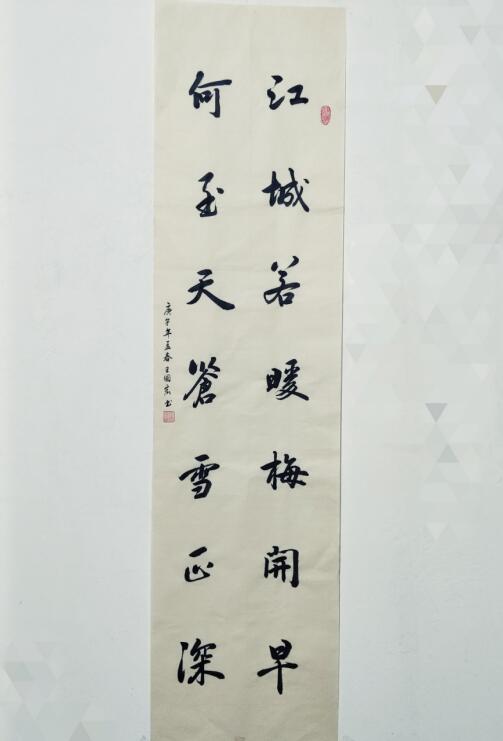 江城若暖梅開早
何至天蒼雪正深
庚子年孟春王國宏書